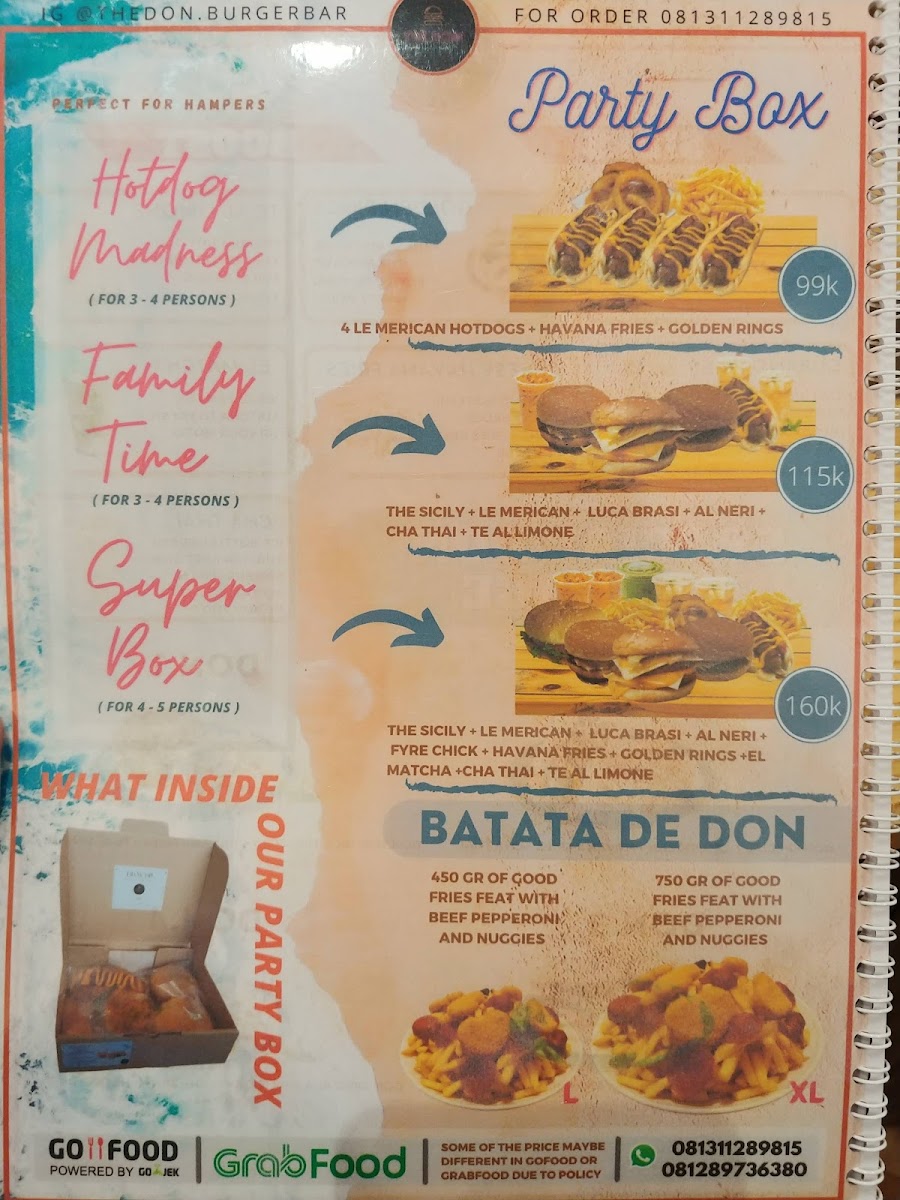 IG @THEDON.BURGERBAR
FOR ORDER 081311289815
PERFECT FOR HAMPERS
Party Box
Hotdog
Madness
( FOR 3 - 4 PERSONS )
99k
4 LE MERICAN HOTDOGS + HAVANA FRIES + GOLDEN RINGS
Family
Time
( FOR 3 - 4 PERSONS )
115k
THE SICILY + LE MERICAN + LUCA BRASI + AL NERI +
CHA THAI + TE AL LIMONE
Super
Box
( FOR 4 - 5 PERSONS )
160k
THE SICILY + LE MERICAN + LUCA BRASI + AL NERI +
FYRE CHICK + HAVANA FRIES + GOLDEN RINGS +EL
MATCHA +CHA THAI + TE AL LIMONE
WHAT INSIDE
OUR PARTY BOX
BATATA DE DON
450 GR OF GOOD
FRIES FEAT WITH
BEEF PEPPERONI
AND NUGGIES
750 GR OF GOOD
FRIES FEAT WITH
BEEF PEPPERONI
AND NUGGIES
L
XL
GO FOOD
POWERED BY GO JEK
GrabFood
SOME OF THE PRICE MAYBE
DIFFERENT IN GOFOOD OR
GRABFOOD DUE TO POLICY
081311289815
081289736380